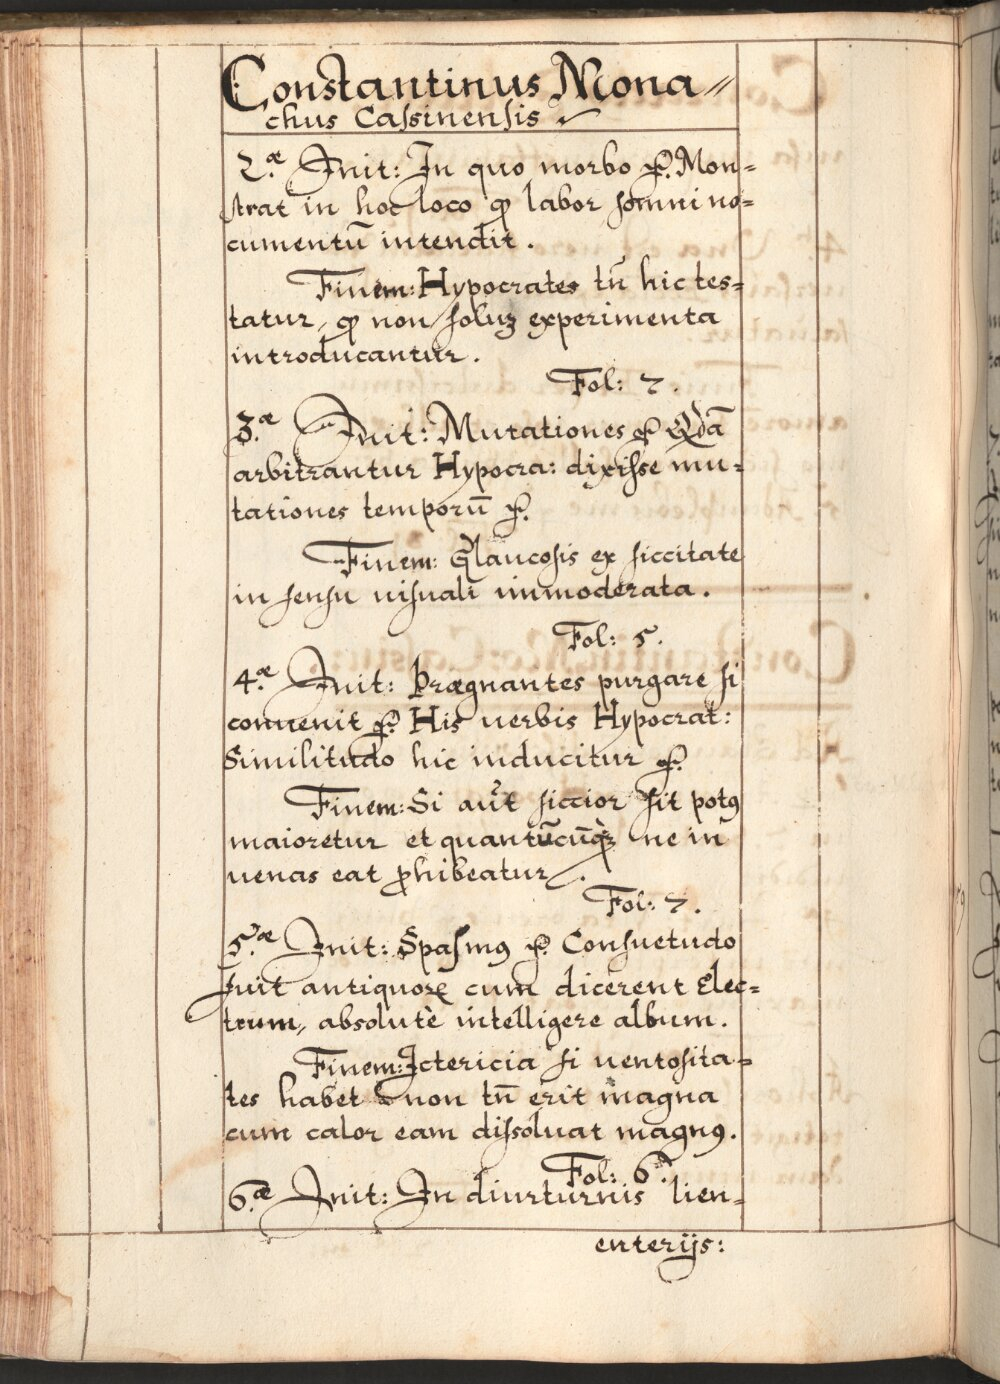 Constantinus Mona〃
chus Caſsinenſis
2.æ Init: In quo morbo &. Mon=
ſtrat in hoc loco ꝙ labor ſomni no=
cumentū intendit.
Finem: Hypocrates tn̄ hic tes=
tatur, ꝙ non ſoluꝫ experimenta
introducantur.
Fol: 7.
3.æ Init: Mutationes & Qdā
arbitrantur Hypocra: dixiſse mu=
tationes temporū &.
Finem: Glaucoſis ex ſiccitate
in ſenſu uiſuali immoderata.
Fol: 5.
4.æ Init: Prægnantes purgare ſi
conuenit &. His uerbis Hypocrat:
Similitudo hic inducitur &.
Finem: Si aūt ſiccior ſit potꝰ
maioretur et quantūcūqꝫ ne in
uenas eat ꝓhibeatur.
Fol: 7.
5.æ Init: Spaſmꝰ &. Conſuetudo
fuit antiquoꝝ cum dicerent Elec=
trum, absolutè intelligere album.
Finem: Ictericia ſi uentoſita=
tes habet non tn̄ erit magna
cum calor eam diſsoluat magnꝰ.
Fol: 6.
6.æ Init: In diurturnis lien=
enterijs: